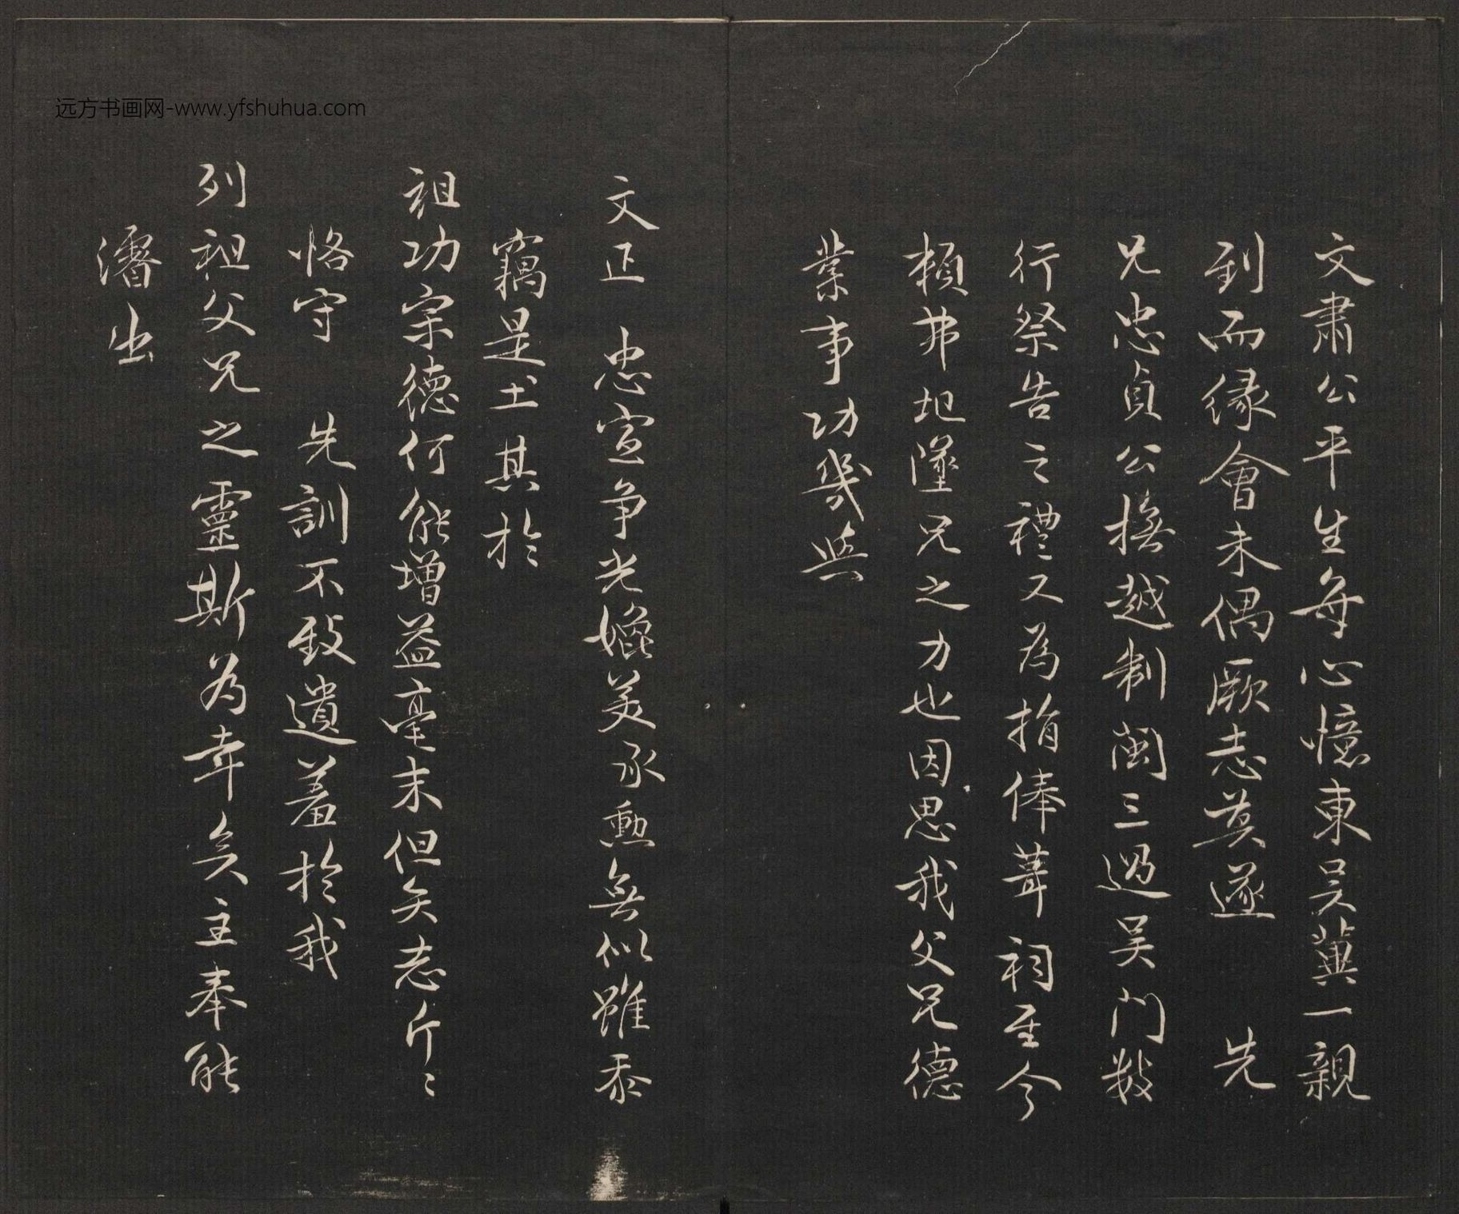 文肅公平生每心憶東吴冀一親
到而緣會未偶厥志莫遂　先
兄忠貞公撫越制閩三過吴門數
行祭告之禮又為指俸葺祠至今
頼弗圯墜兄之力也因思我父兄德
業事功幾與
文正　忠宣争光媲美承勳無似雖忝
竊是土其於
祖功宗德何能增益毫末但矢志斤斤
恪守　先訓不致遺羞於我
列祖父兄之靈斯為幸矣主奉能
濬出
远方书画网-www.yfshuhua.com